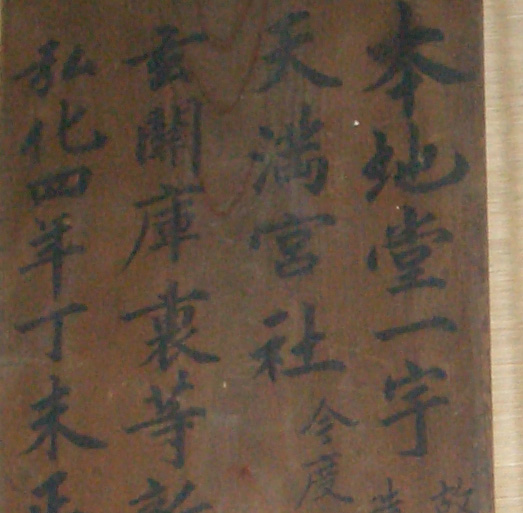 本地堂一宇
故
造
天満宮社 今度
玄関庫裏等新
弘化四年丁未正